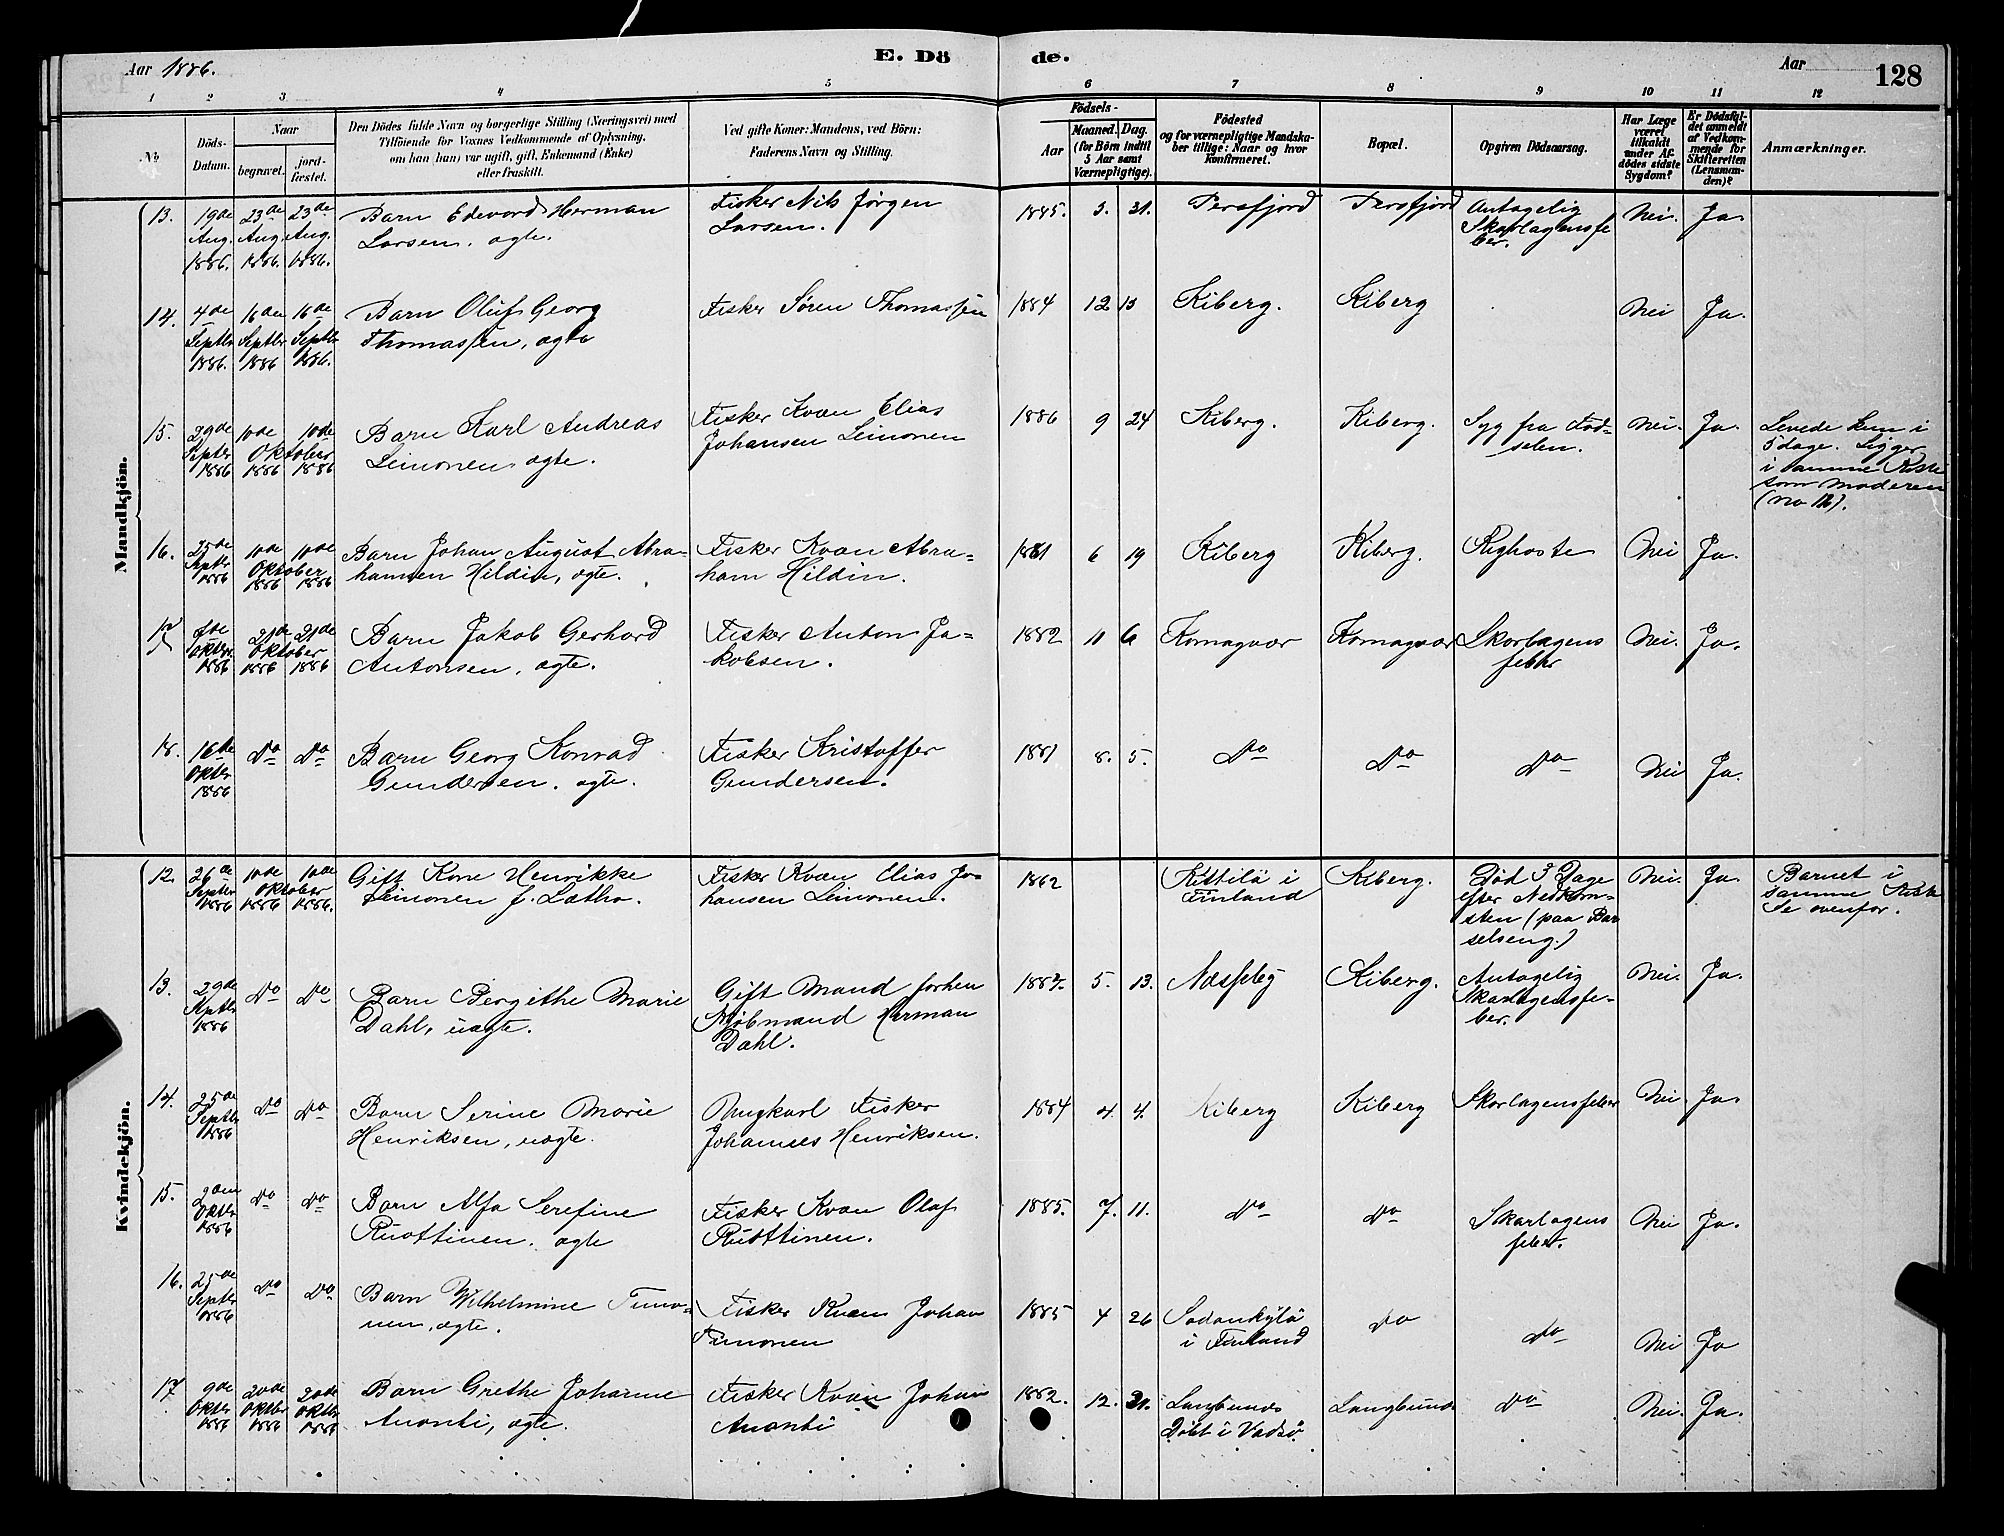 Aar 1886.
E. Dö
de.
Aar
128
1 2 3 4 5 6 7 8 9 10 11 12
No
Döds-Datum.
Naar
begravet.
jordfæstet.
Den Dödes fulde Navn og borgerlige Stilling (Næringsvei) med
Tilföiende for Voxnes Vedkommende af Oplysning,
om han (hun) var ugift, gift, Enkemand (Enke)
eller fraskilt.
Ved gifte Koner: Mandens, ved Börn:
Faderens Navn og Stilling.
Födsels-
Aar
Maaned. Dag.
(for Börn indtil
5 Aar samt
Værnepligtige).
Födested
og for værnepligtige Mandska-
ber tillige: Naar og hvor
Konfirmeret.
Bopæl.
Opgiven Dödsaarsag.
Har Læge
været
tilkaldt
under Af-
dödes sidste
Sygdom?
Er Dödsfal-
det anmeldt
af Vedkom-
mende for
Skifteretten
(Lensman-
den)?
Anmærkninger.
Mandkjön.
13. 19de Aug. 1886. 23de Aug. 1886. 23de Aug. 1886. Barn Edevard Herman Larsen. ægte. Fisker Nils Jörgen Larsen. 1885. 3. 31. Persfjord Persfjord Antagelig Skarlagensfeber. Nei. Ja.
14. 4de Septbr 1886. 16de Septbr 1886 16de Septbr 1886. Barn Oluf Georg Thomassen, ægte Fisker Søren Thomassen 1884 12 13 Kiberg. Kiberg Nei Ja.
15. 29de Septbr 1886 10de Oktober 1886 10de 1886 Barn Karl Andreas Leinonen. ægte. Fisker Kvæn Elias Johansen Leinonen 1886 9 24 Kiberg. Kiberg. Syg fra Fødselen. Nei. Ja. Levede kun i 5 dage. Ligger i samme Kiste som Moderen (No 12).
16. 25de Septbr 1886 10de Oktober 1886 10de 1886 Barn Johan August Abrahamsen Hildin, ægte. Fisker Kvæn Abraham Hildin. 1881 6 19 Kiberg Kiberg. Kighoste Nei Ja.
17 Oktbr. 1886 21de Oktober 1886 21de 1886 Barn Jakob Gerhard Antonsen, ægte. Fisker Anton Jakobsen. 1882 11 6 Komagvær Komagvær Skarlagensfeber Nei. Ja.
18. 16de Oktbr 1886 Do Do Barn Georg Konrad Gundersen. ægte. Fisker Kristoffer Gundersen. 1881 8. 5. Do Do Do Nei Ja.
Kvindekjön.
12. 26de Septbr 1886 10de Oktober 1886 10de 1886. Gift Kone Henrikke Leinonen f. Latho. Fisker Kvæn Elias Johansen Leinonen. 1862 Kittilä i Finland Kiberg. Død 3 Dage efter Nedkomsten (paa Barselseng.) Nei. Ja. Barnet i samme Kiste Se ovenfor.
13. 29de Septbr 1886 Do Do Barn Bergithe Marie Dahl, uægte. Gift Mand forhen Kjöbmand Herman Dahl. 1882. 5. 13. Næsseby Kiberg. Antagelig Skarlagensfeber. Nei. Ja.
14. 25de Septbr 1886 Do Do Barn Serine Marie Henriksen, uægte. Ungkarl Fisker Johannes Henriksen. 1884 4. 4. Kiberg Kiberg Skarlagensfeber Nei Ja.
15. 2den Oktbr 1886 Do Do Barn Alfa Serefine Ruottinen. ægte Fisker Kvæn Olaf Ruottinen. 1885. 7. 11. Do Do Skarlagensfeber. Nei Ja.
16. 25de Septbr 1886 Do Do Barn Wilhelmine Timonen, ægte. Fisker Kvæn Johan Timonen 1885 4 26 Sodankylä i Finland Do Do Nei Ja
17 9de Oktbr 1886 20de Oktbr 1886 20de Oktbr 1886 Barn Grethe Johanne Ananti, ægte. Fisker Kvæn Johan Ananti 1882. 12. 21. Langbunes Döbt i Vadsö. Langbunes Do Nei. Ja.